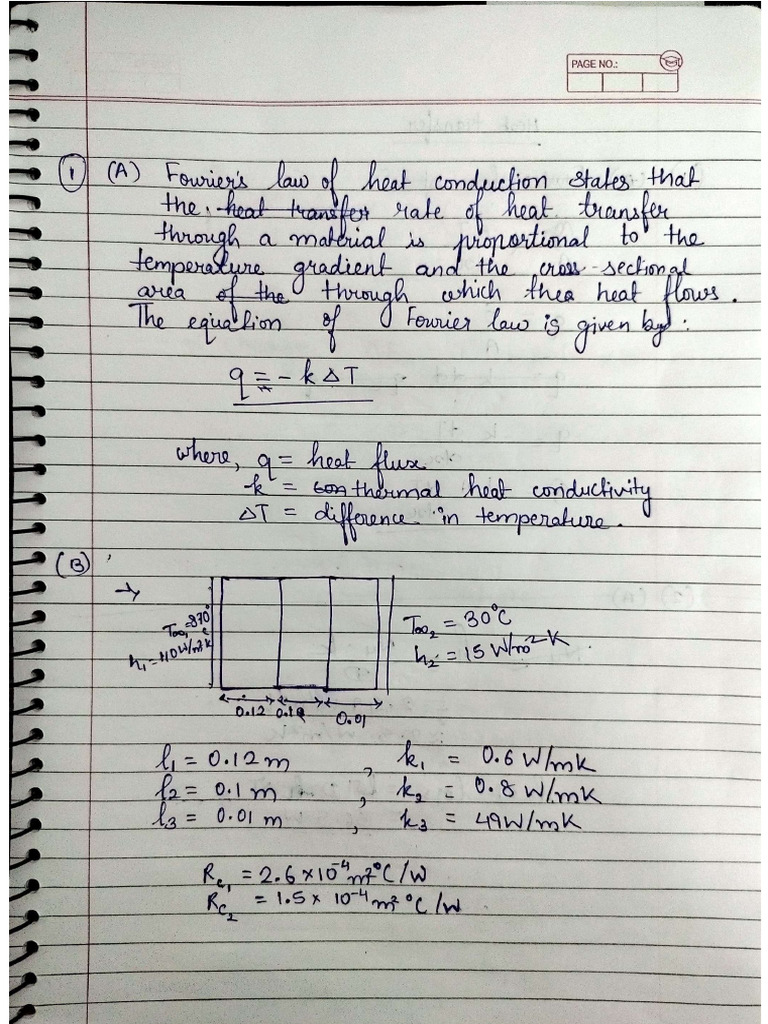 PAGE NO.:
① (A) Fourier's law of heat conduction states that
the heat transfer rate of heat transfer
through a material is proportional to the
temperature gradient and the cross-sectional
area of the through which thea heat flows.
The equation of Fourier law is given by:
q = - k ΔT
where, q = heat flux.
k = con thermal heat conductivity
ΔT = difference in temperature.
(B)
T∞₁=870°C
h₁=110W/m²K
T∞₂ = 30°C
h₂ = 15 W/m²-K
0.12 0.10 0.01
l₁ = 0.12 m , k₁ = 0.6 W/mK
l₂ = 0.1 m , k₂ = 0.8 W/mK
l₃ = 0.01 m , k₃ = 49W/mK
Rc₁ = 2.6 × 10⁻⁴ m²°C/W
Rc₂ = 1.5 × 10⁻⁴ m²°C/W